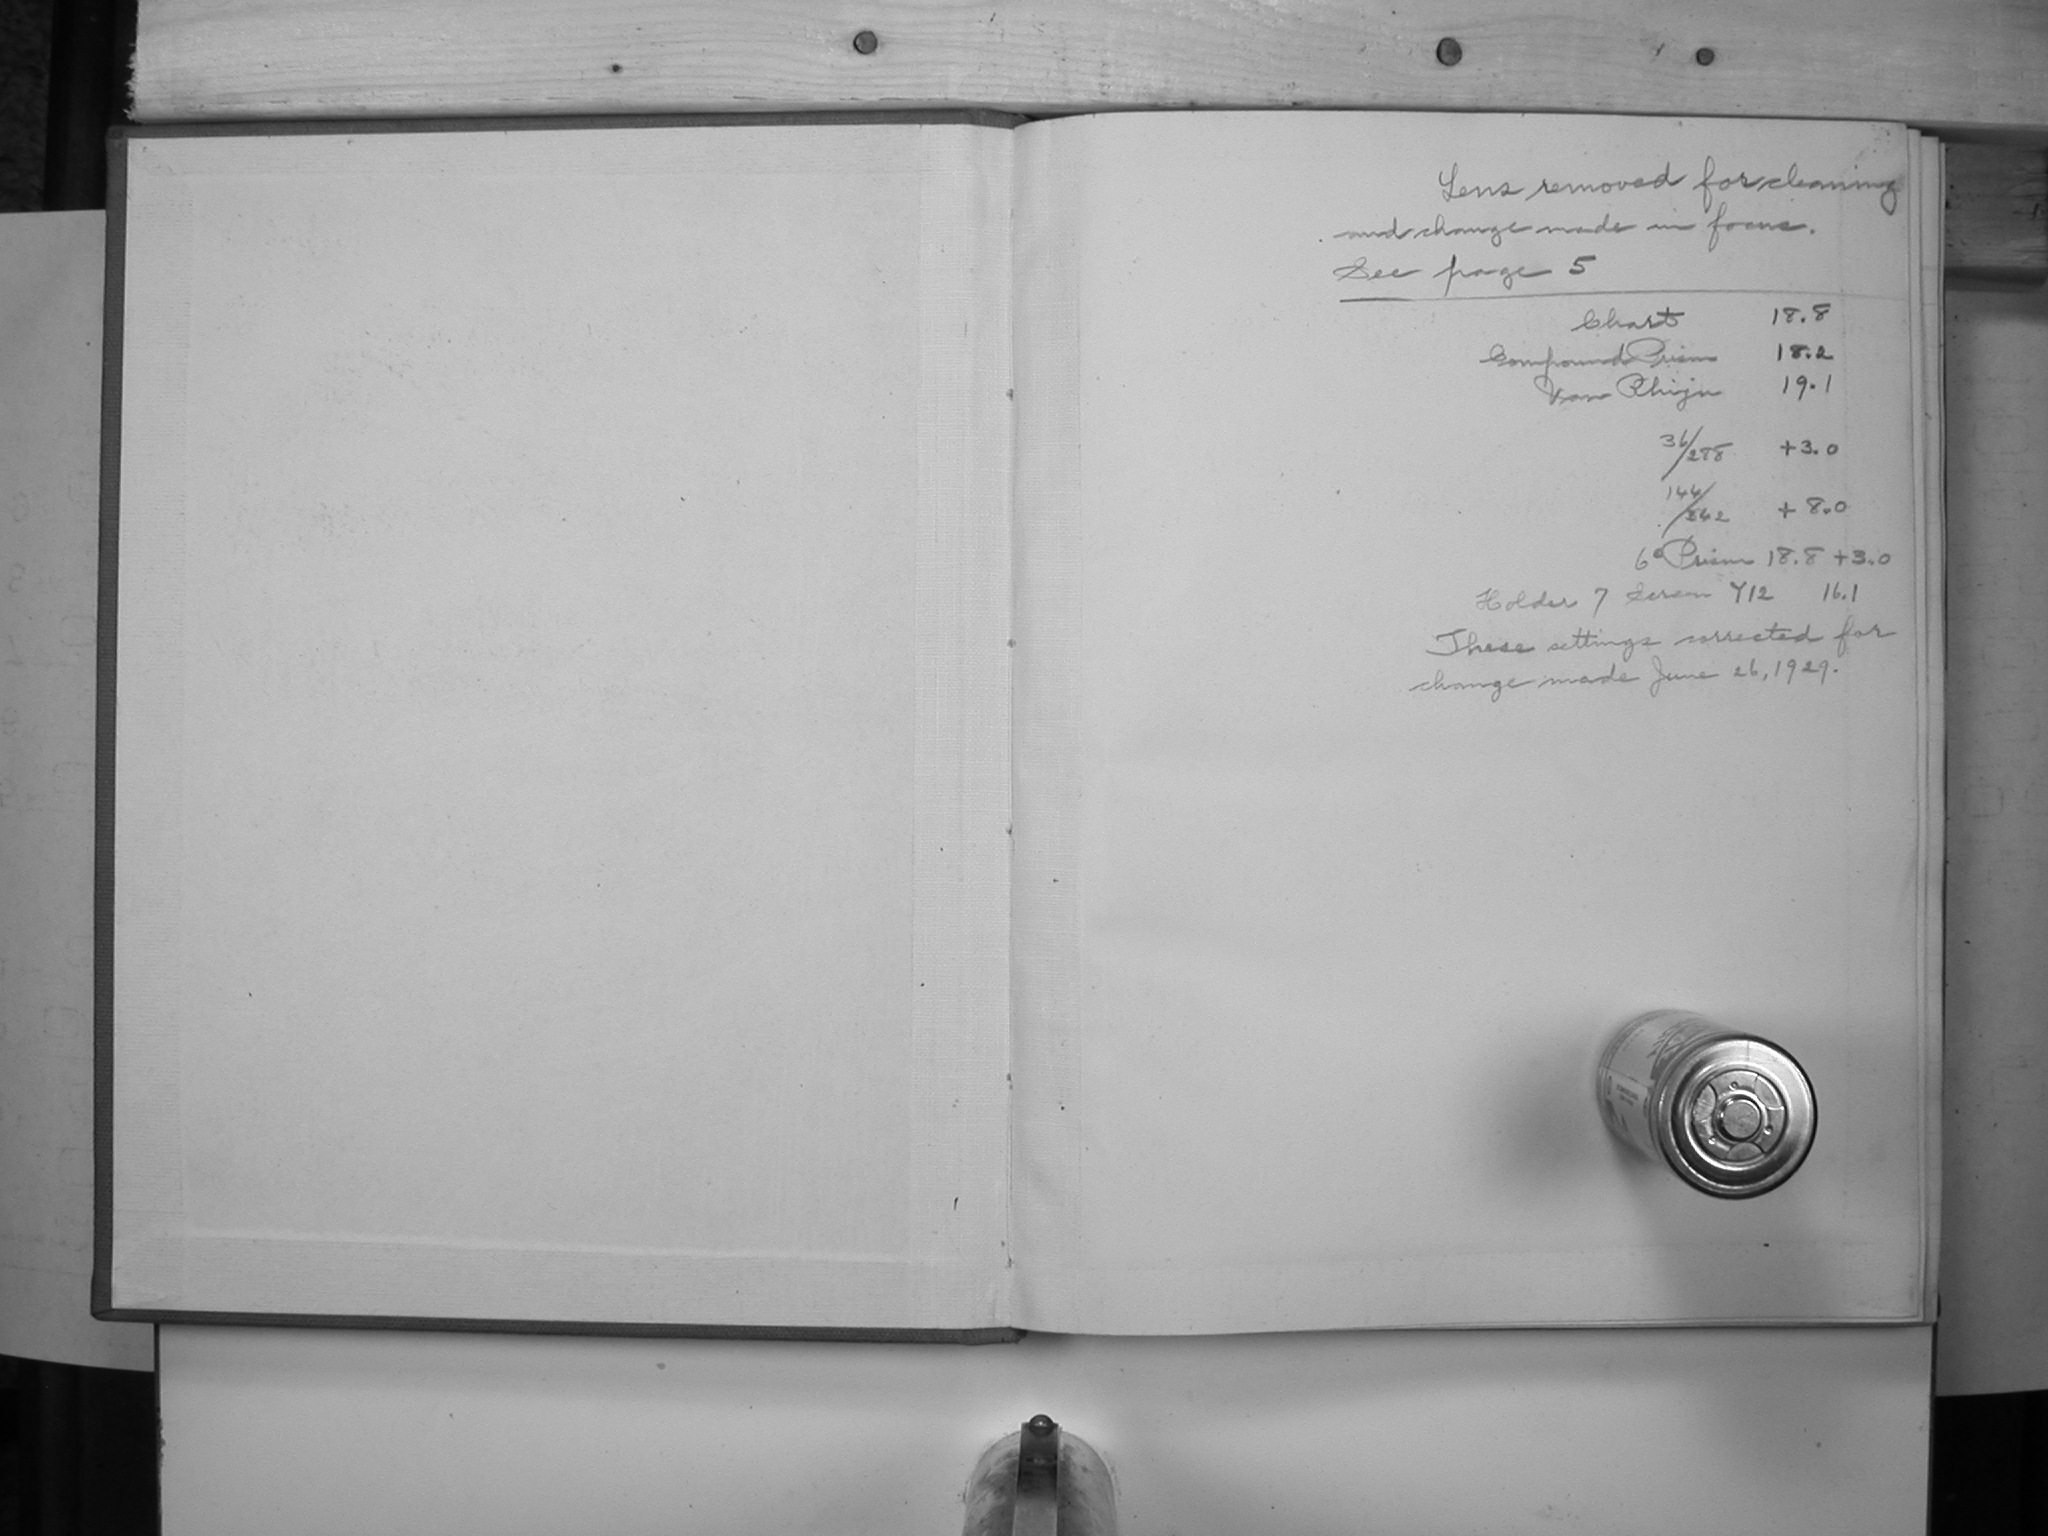 Lens removed for cleaning
and change made in focus.
See page 5
Chart 18.8
Compound Prism 18.2
Van Rhijn 19.1
36/288 +3.0
144/242 + 8.0
6° Prism 18.8 +3.0
Holder 7 Screen Y12 16.1
These settings corrected for
change made June 26, 1929.